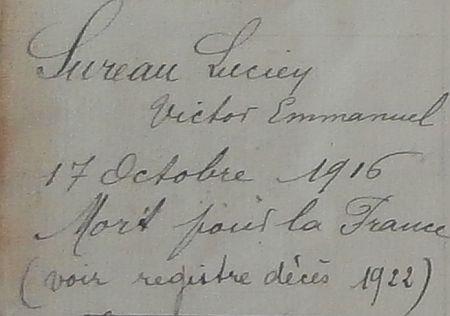 Sureau Lucien
Victor Emmanuel
17 Octobre 1916
Mort pour la France
(voir registre décès 1922)